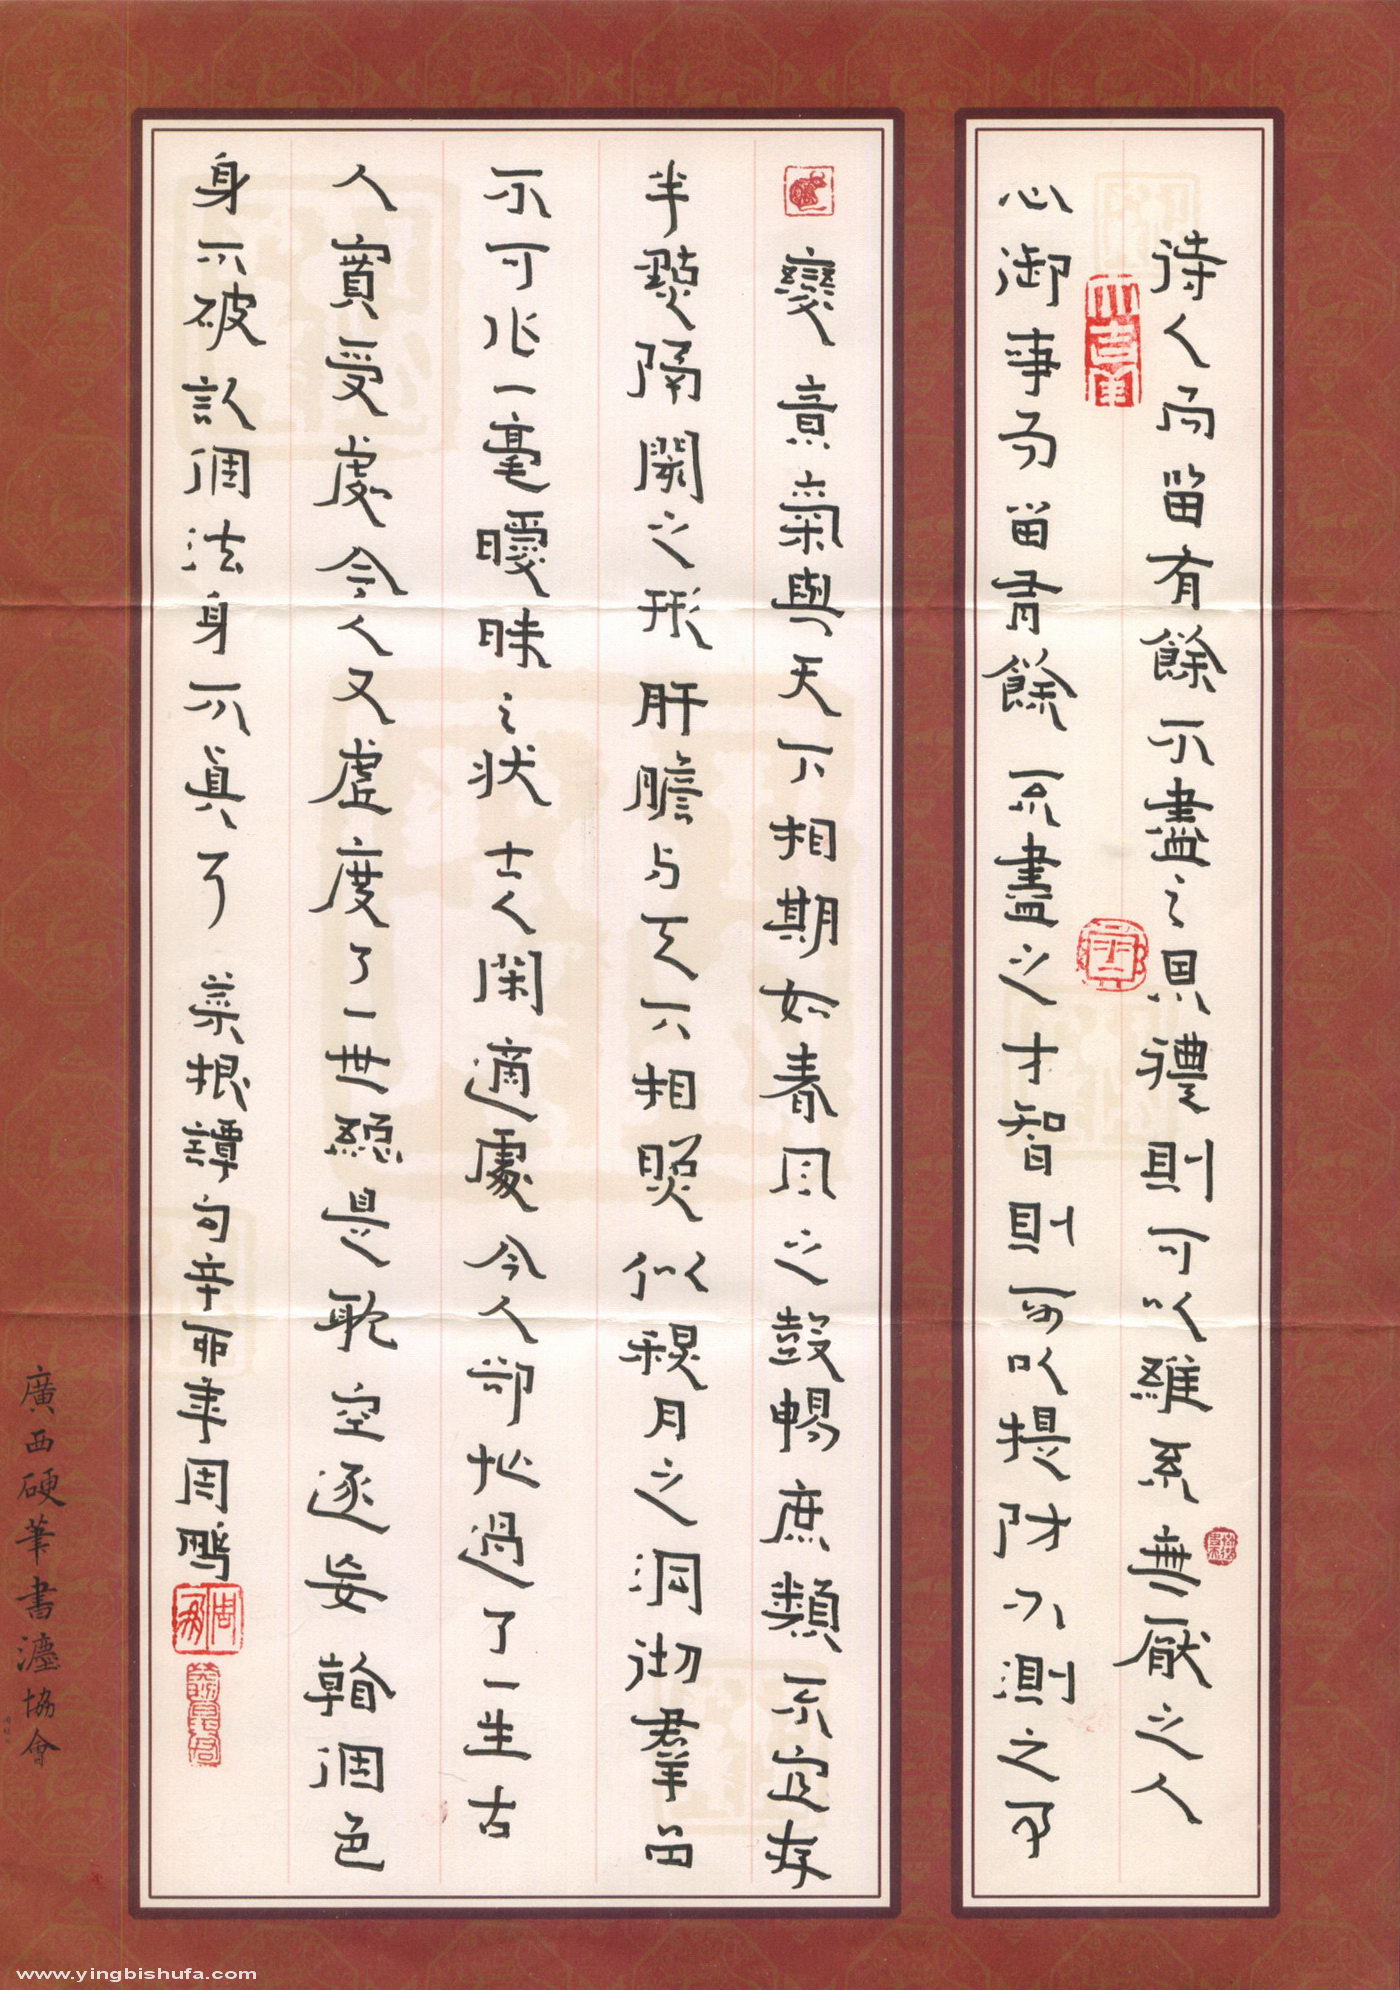 待人而留有餘不盡之恩禮則可以維系無厭之人
心御事而留有餘不盡之才智則可以提防不測之事
變意氣與天下相期如春風之鼓暢庶類不宜存
半點隔閡之形肝膽与天下相照似秋月之洞沏羣品
不可作一毫曖昧之狀士人閑適處今人卻忙過了一生古
人實受處今人又虛度了一世總是耽空逐妄看個色
身不破認個法身不真了 菜根譚句辛卯年周鵬
周鵬
廣西硬筆書灋協會
www.yingbishufa.com